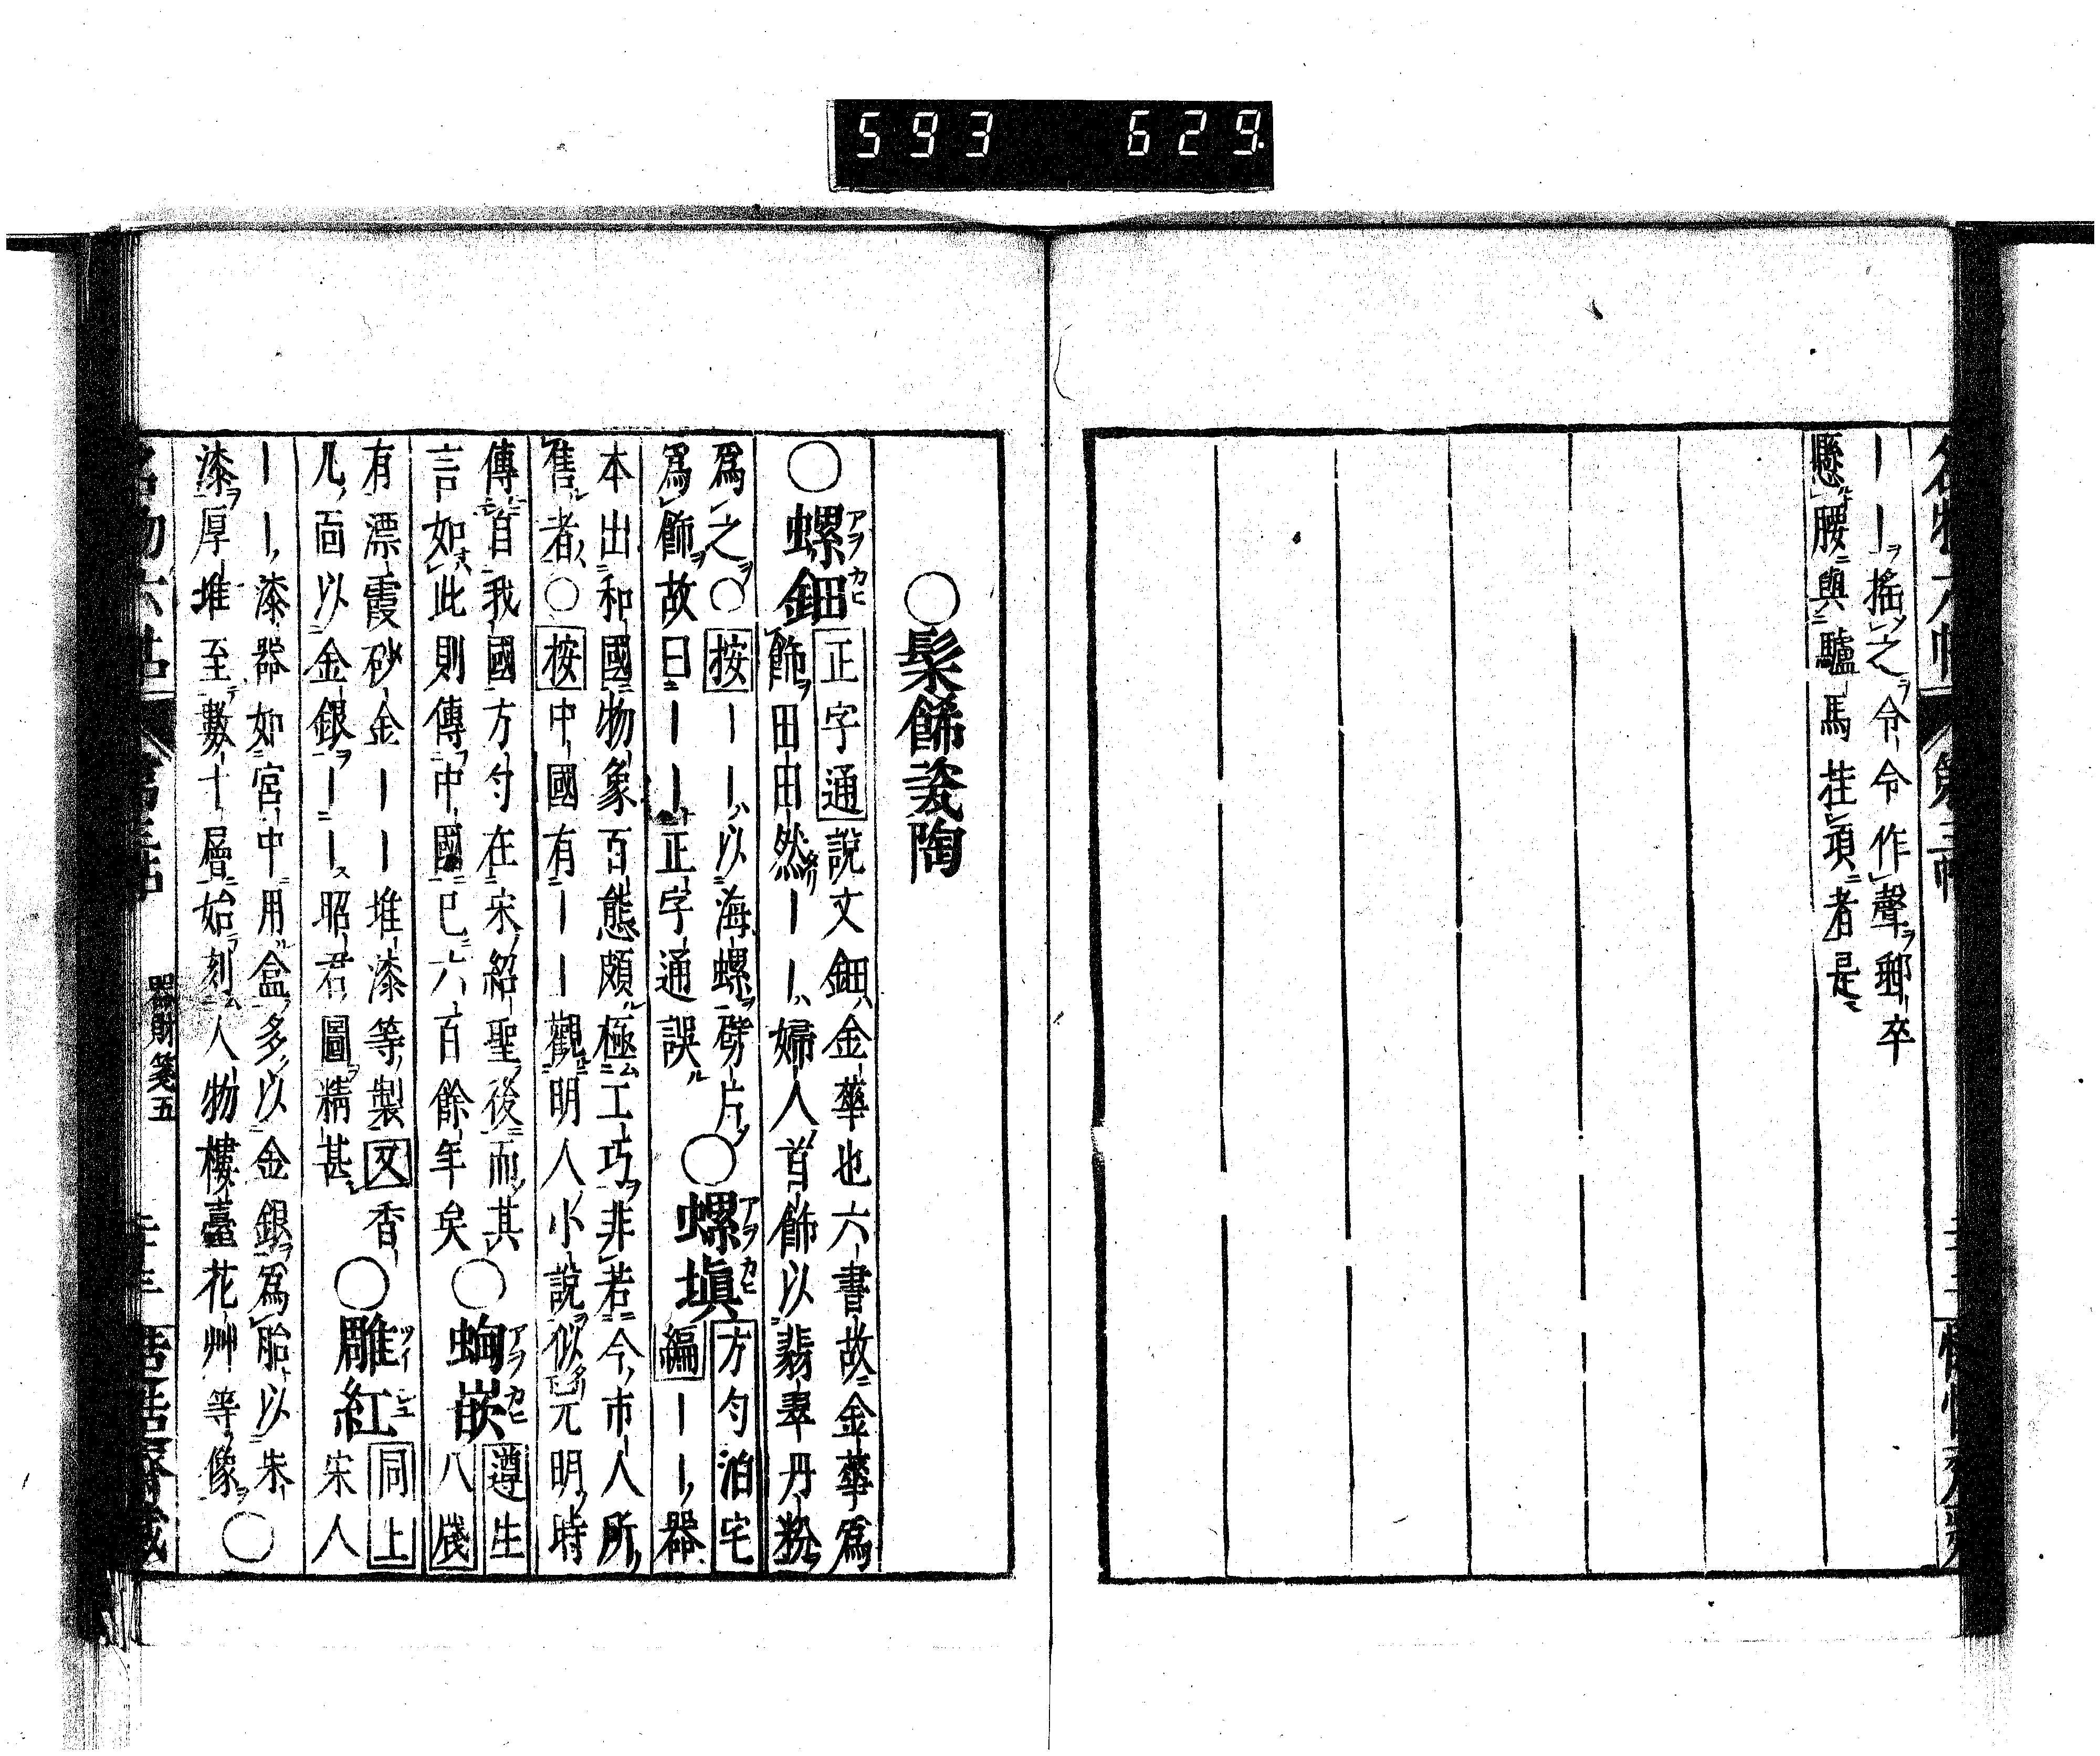 593 629
｜｜ヲ搖之令令作聲郵卒
懸腰與驢馬在項者是
○髹飾瓷陶
○螺鈿 アヲカヒ
正字通 說文鈿金華也六書故金華爲
飾田田然｜｜婦人首飾以翡翠丹粉
爲之○按｜｜以海螺劈片
爲飾故曰｜｜正字通誤
○螺塡 アヲカヒ
方勺泊宅
編｜｜器
本出和國物象百態頗極工巧非若今市人所
售者○按中國有｜｜觀明人小說似元明時
傳自我國方勺在宋紹聖後而其
言如此則傳中國已六百餘年矣
○蚼嵌 アヲカヒ
遵生
八牋
有漂霞砂金｜｜堆漆等製又香
几面以金銀｜｜昭君圖精甚
○雕紅 ツイシユ
同上
宋人
｜｜漆器如宮中用盒多以金銀爲胎以朱
漆厚堆至數十層始刻人物樓臺花艸等像○
器財箋五